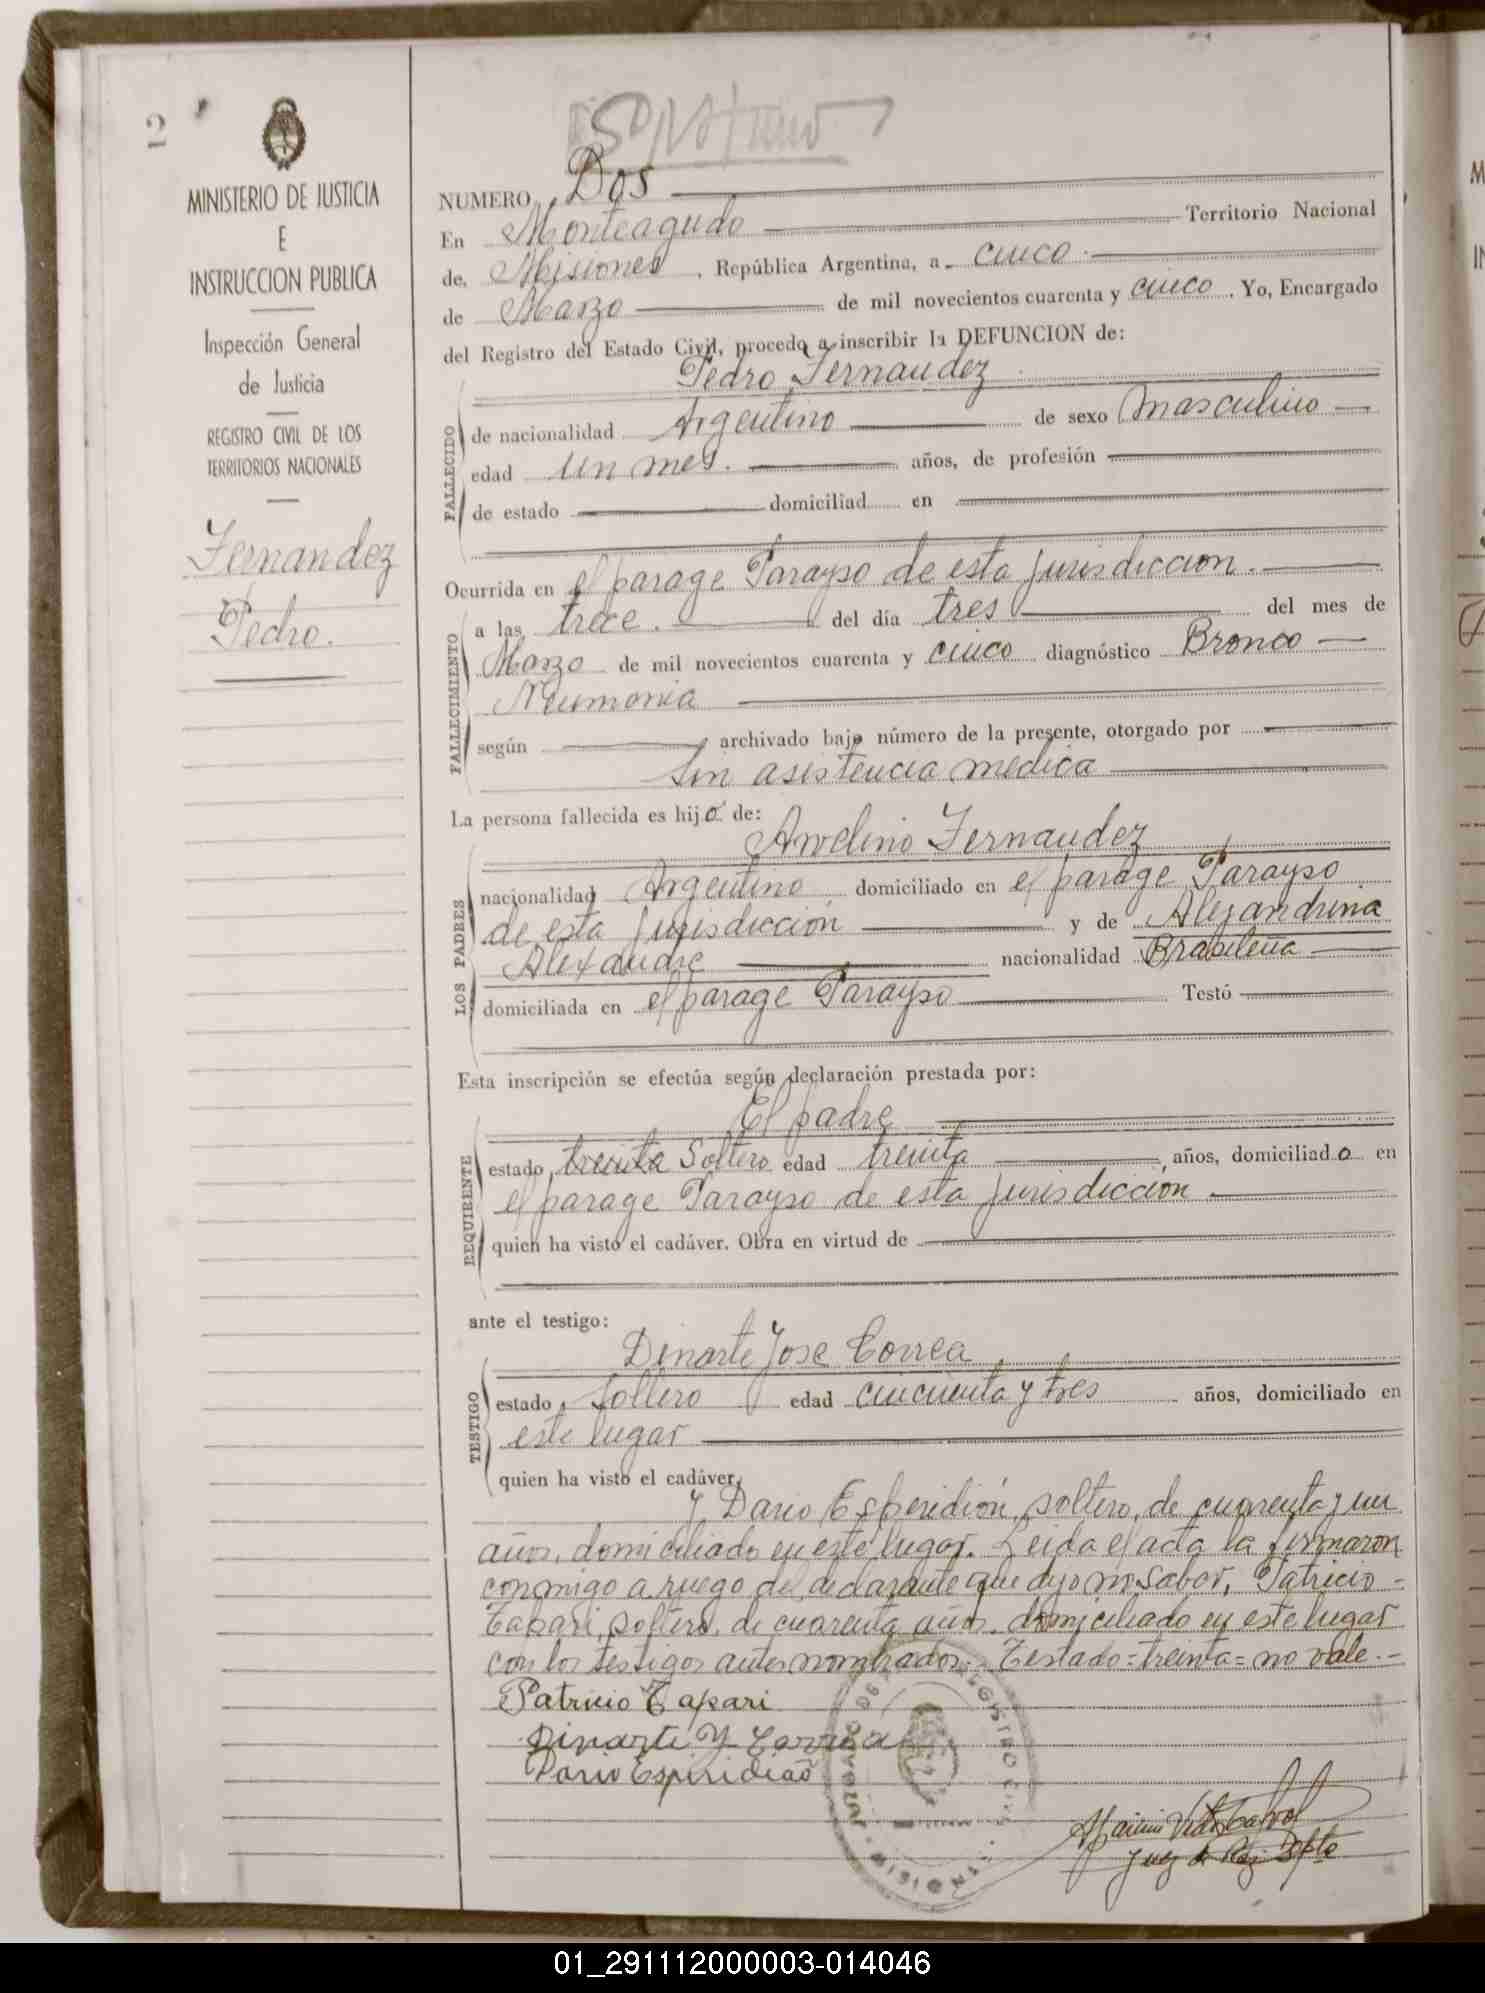 2
MINISTERIO DE JUSTICIA
E
INSTRUCCION PUBLICA
Inspección General
de Justicia
REGISTRO CIVIL DE LOS
TERRITORIOS NACIONALES
Fernandez
Pedro.
NUMERO Dos
En Monteagudo Territorio Nacional
de Misiones, República Argentina, a cinco
de Marzo de mil novecientos cuarenta y cinco. Yo, Encargado
del Registro del Estado Civil, procedo a inscribir la DEFUNCION de:
Pedro Fernandez
FALLECIDO
de nacionalidad Argentino de sexo masculino
edad un mes. años, de profesión
de estado domiciliad en
Ocurrida en el parage Parayso de esta jurisdiccion.
FALLECIMIENTO
a las trece. del día tres del mes de
Marzo de mil novecientos cuarenta y cinco diagnóstico Bronco
Neumonia
según archivado bajo número de la presente, otorgado por
Sin asistencia medica
La persona fallecida es hijo de:
Avelino Fernandez
LOS PADRES
nacionalidad Argentino domiciliado en el parage Parayso
de esta jurisdicción y de Alejandrina
Alexandre nacionalidad Brasileña
domiciliada en el parage Parayso Testó
Esta inscripción se efectúa según declaración prestada por:
El padre
REQUIRENTE
estado treinta Soltero edad treinta años, domiciliado en
el parage Parayso de esta jurisdiccion
quien ha visto el cadáver. Obra en virtud de
ante el testigo:
Dinarte Jose Correa
TESTIGO
estado Soltero edad cincuenta y tres años, domiciliado en
este lugar
quien ha visto el cadáver,
y Dario Esperidión, soltero, de cuarenta y un
años, domiciliado en este lugar. Leida el acta la firmaron
conmigo a ruego del declarante que dijo no saber, Patricio
Tapari, soltero, de cuarenta años, domiciliado en este lugar
con los testigos antes nombrados. Testado=treinta=no vale.-
Patricio Tapari
Dinarte Y Correa
Dario Espiridiaõ
REGISTRO CIVIL
Juez de Paz Depto
01_291112000003-014046